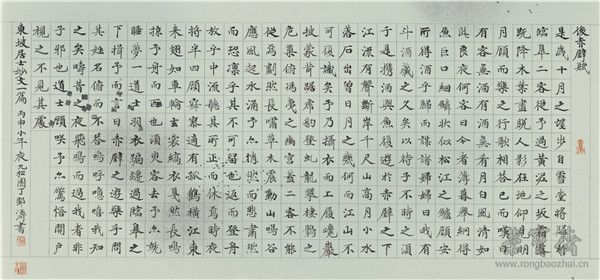 後赤壁賦
是歲十月之望步自雪堂將歸於
臨皋二客從予過黃泥之坂霜露
既降木葉盡脫人影在地仰見明
月顧而樂之行歌相答已而歎曰
有客無酒有酒無肴月白風清如
此良夜何客曰今者薄暮舉網得
魚巨口細鱗狀似松江之鱸顧安
所得酒乎歸而謀諸婦婦曰我有
斗酒藏之久矣以待子不時之須
於是攜酒與魚復遊於赤壁之下
江流有聲斷岸千尺山高月小水
落石出曾日月之幾何而江山不
可復識矣予乃攝衣而上履巉巖
披蒙茸踞虎豹登虬龍攀棲鶻之
危巢俯馮夷之幽宮蓋二客不能
從焉劃然長嘯草木震動山鳴谷
應風起水涌予亦悄然而悲肅然
而恐凜乎其不可留也返而登舟
放乎中流聽其所止而休焉時夜
將半四顧寂寥適有孤鶴橫江東
來翅如車輪玄裳縞衣戛然長鳴
掠予舟而西也須臾客去予亦就
睡夢一道士羽衣翩躚過臨皋之
下揖予而言曰赤壁之遊樂乎問
其姓名俛而不答嗚呼噫嘻我知
之矣疇昔之夜飛鳴而過我者非
子邪也道士顧笑予亦驚悟開戶
視之不見其處
東坡居士妙文一篇 丙申小年夜九松園丁鄭濤書
www.rongbaozhai.cn